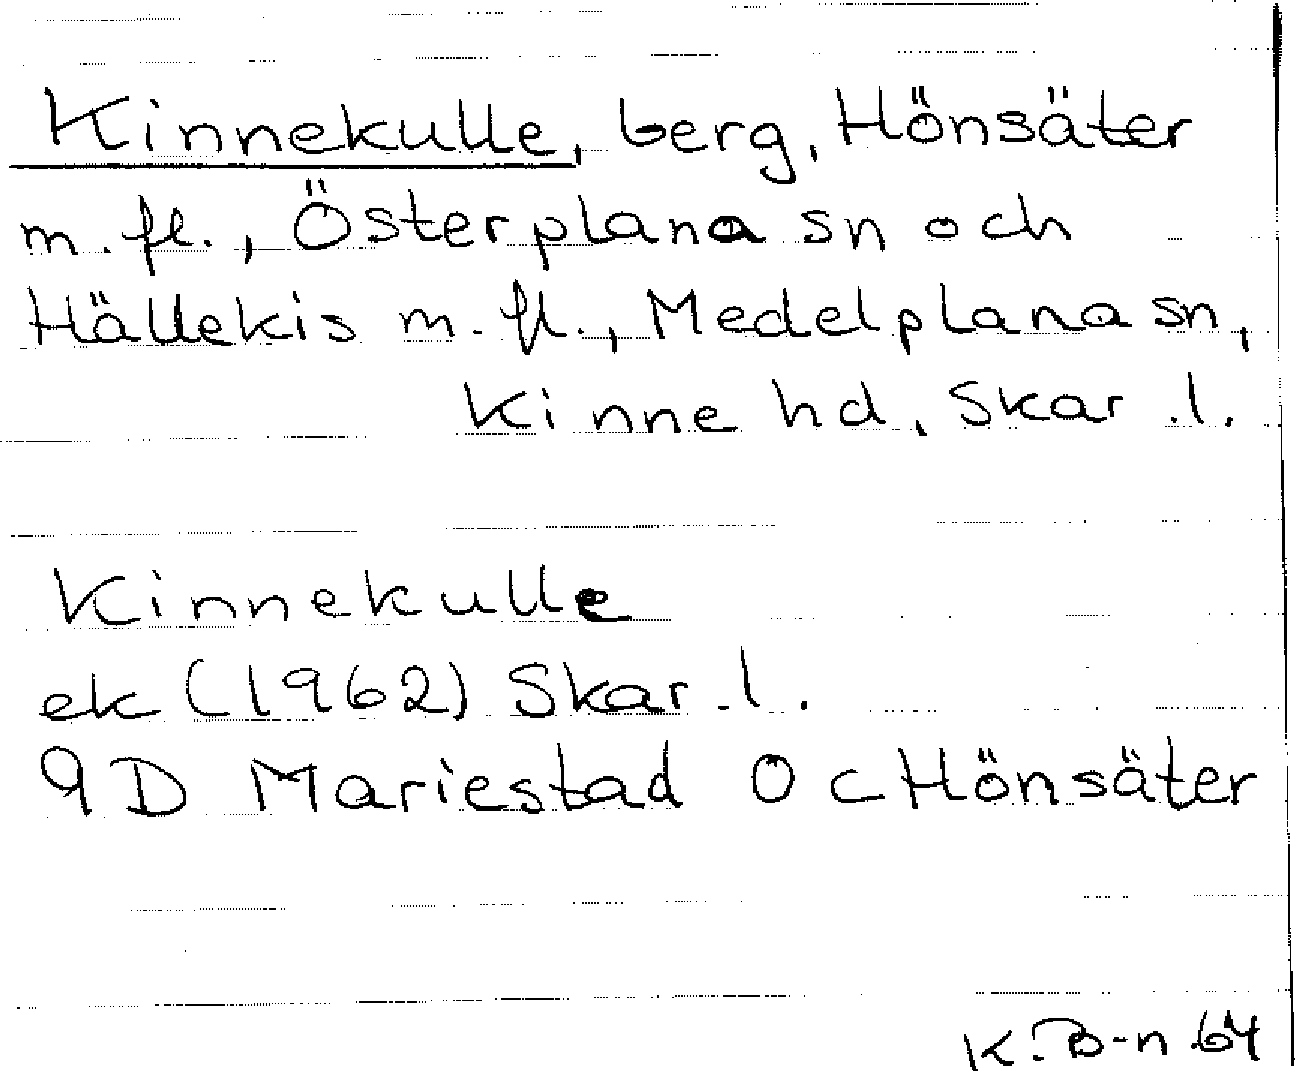 Kinnekulle, berg, Hönsäter
m.fl., Österplana sn och
Hällekis m.fl., Medelplana sn,
Kinne hd, Skar.l.
Kinnekulle
ek (1962) Skar.l.
9D Mariestad 0 c Hönsäter
K.B-n 64